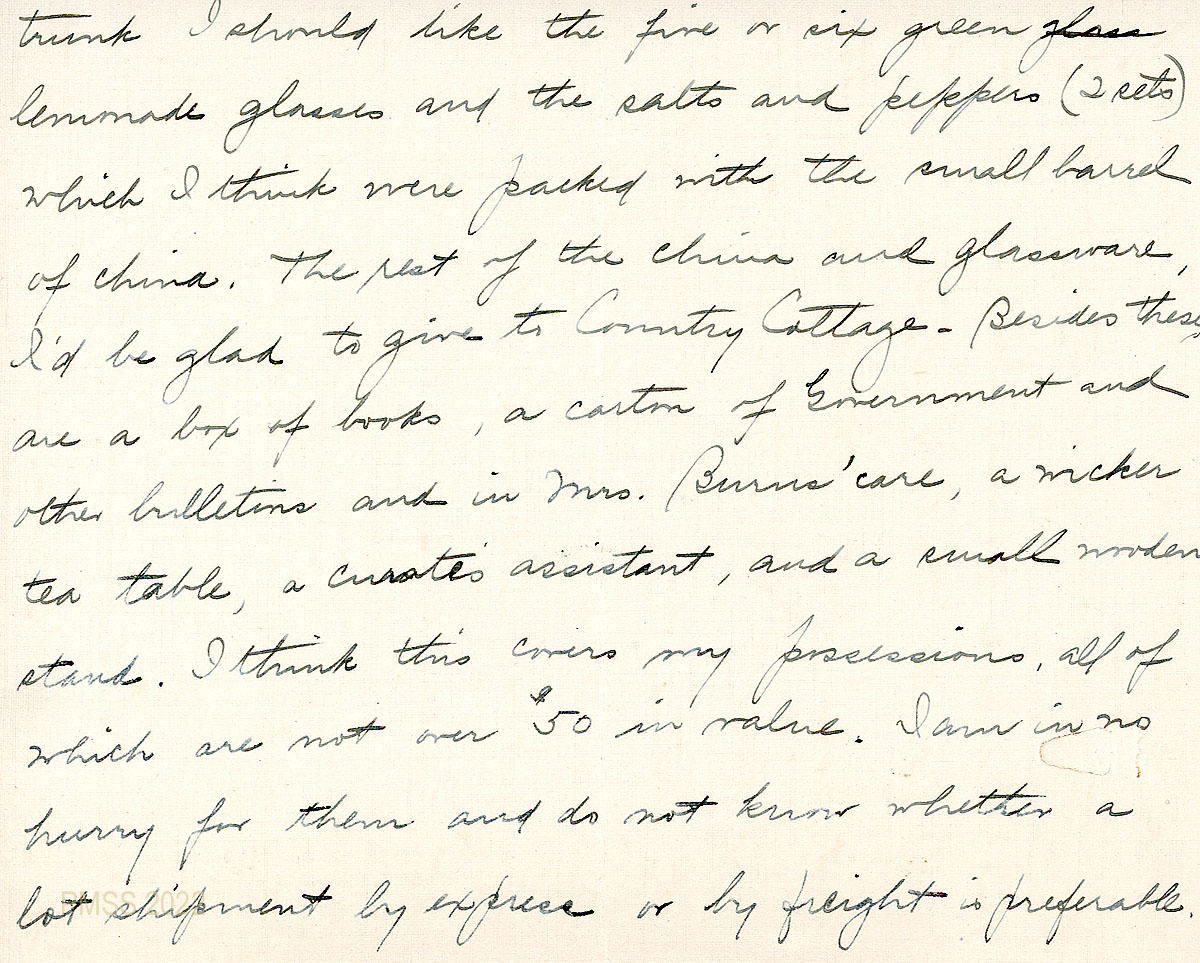 trunk I should like the five or six green ~~glass~~
lemonade glasses and the salts and peppers (2 sets)
which I think were packed with the small barrel
of china. The rest of the china and glassware,
I'd be glad to give to Country Cottage - Besides these,
are a box of books, a carton of Government and
other bulletins and in Mrs. Burns' care, a wicker
tea table, a curate's assistant, and a small wooden
stand. I think this covers my possessions, all of
which are not over $50 in value. I am in no
hurry for them and do not know whether a
lot shipment by express or by freight is preferable.
PMSS 2022